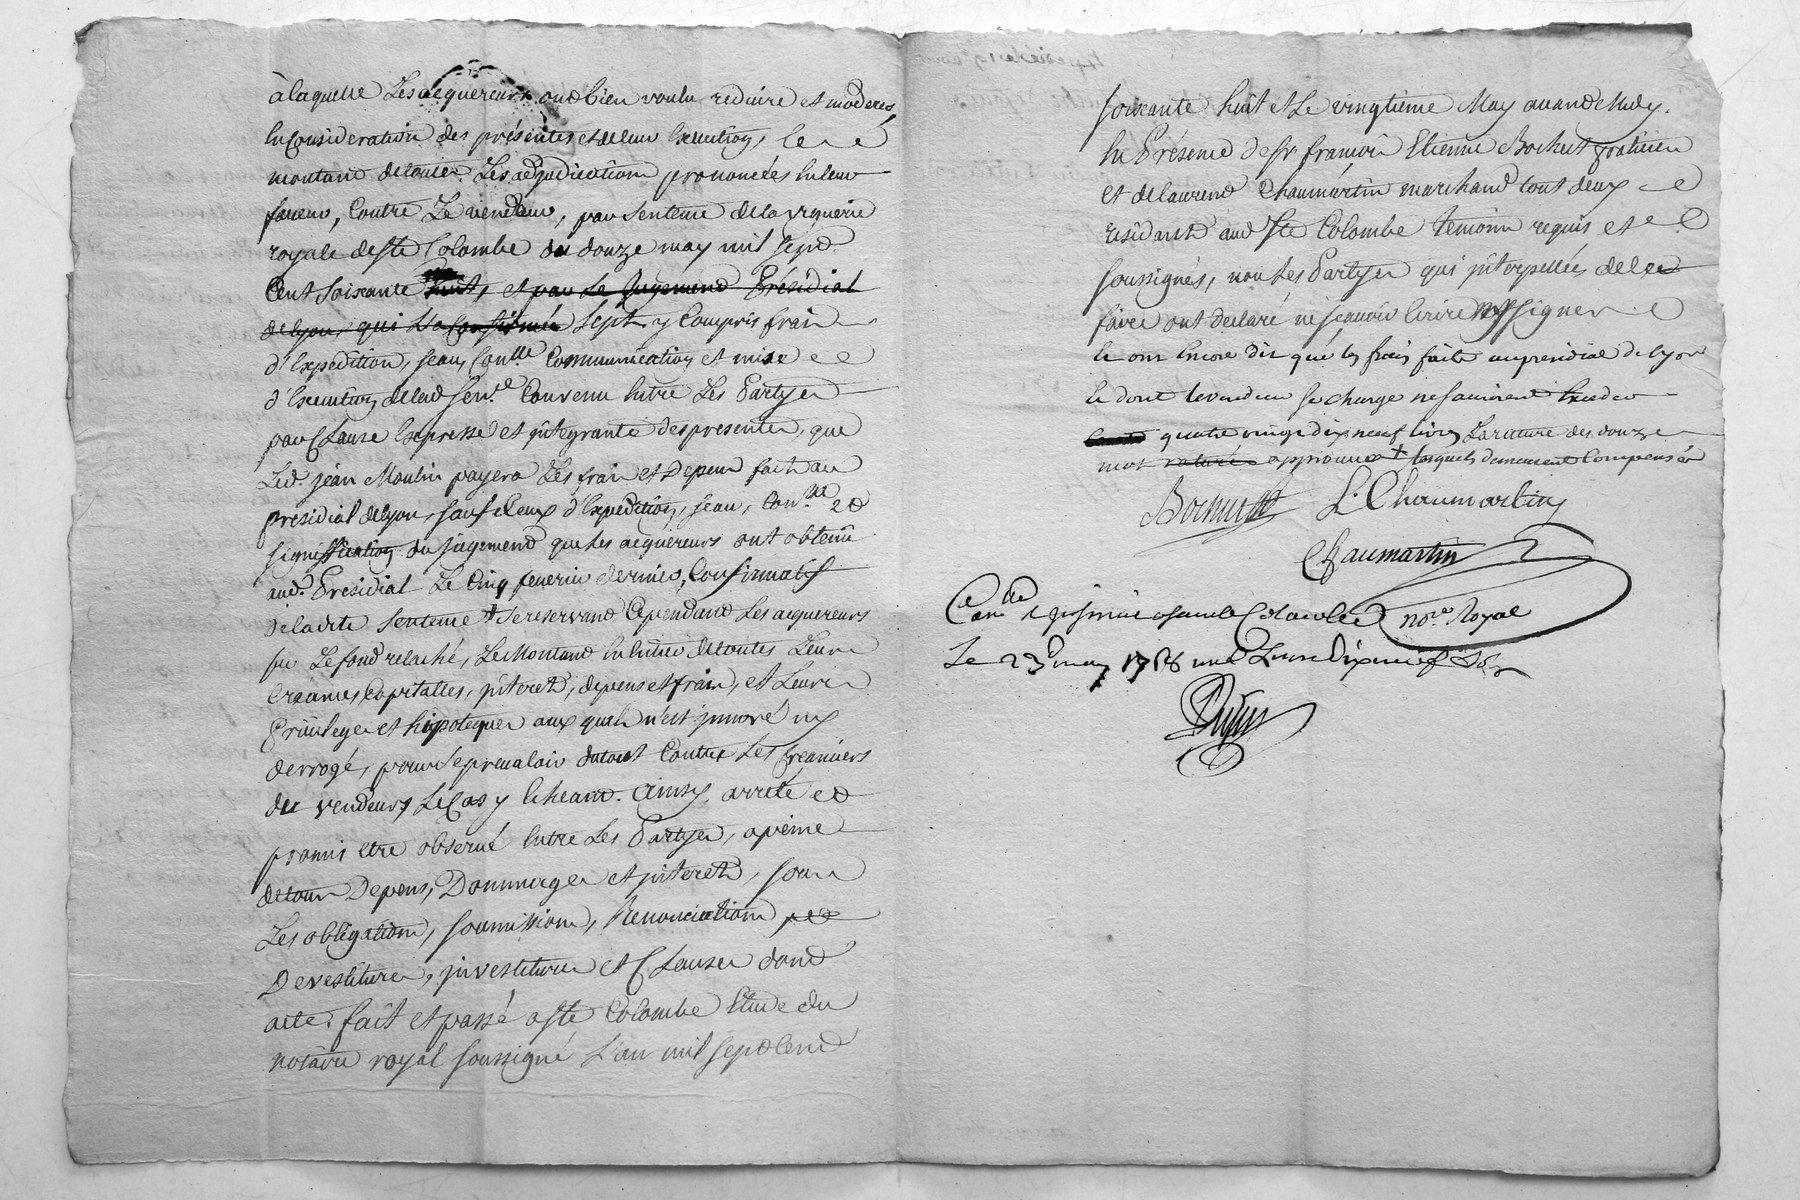 à laquelle Les acquereurs ont bien voulu reduire et moderer
En Consideration des présentes et de leur Execution, le
montant de toutes Les adjudications prononcées En leur
faveur, Contre Le vendeur, par Sentence de la viguerie
royale de Ste Colombe du douze may mil sept
Cent Soixante huit, et par Le Jugement Présidial
de lyon, qui L'a Confirmée Sept, y Compris frais
d'Expedition, sceau, Conlle Communication, et mise
d'Execution de lad Sence Convenu Entre Les Partyes
par Clause Expresse et jntegrante des presentes, que
Led. jean Moulin payera Les frais et Depens faits au
présidial de Lyon, sauf Ceux d'Expedition, sceau, Conlle et
signiffication du jugement que Les acquereurs ont obtenu
aud. Présidial Le Cinq fevrier dernier, Confirmatif
de ladite Sentence + Se reservant Cependant Les acquereurs
sur Le fond relaché, Le Montant En Entier de toutes Leurs
Creances, Capitalles, jnterets, depens et frais, et Leurs
Privileges et hipoteques aux quels n'est jnnové ny
derrogé, pour s'en prevaloir du tout Contre Les
des vendeurs Le Cas y Echeant. Ainsy arreté et
promis etre observé Entre Les Partyes, a peine
de tous Depens, Dommages et jnterets, sous
Les obligations, soumissions, Renonciations
Devestitures, jnvestitures et Clauses dont
acte. fait et passé a Ste Colombe Etude du
notaire royal soussigné L'an mil sept Cent
soixante huit et Le vingtieme May avant Midy.
En Présence de Sr françois Etienne Bochut praticien
et de Laurent Chaumartin marchand tous deux
residants aud Ste Colombe temoins requis et
soussignés, non Les Partyes qui jnterpellées de le
faire ont declaré ne sçavoir Ecrire ny signer
Et ont Encore dit que les frais faits au presidial de lyon
Et dont le vendeur se charge ne sauroient Exceder
quatre vingt dix neuf livres La rature des douze
mots raturés approuvée + lesquels demeurent Compensés
Bochut L. Chaumartin
Chaumartin
nore Royal
Le 23 may 1768 Livre dix neuf sols